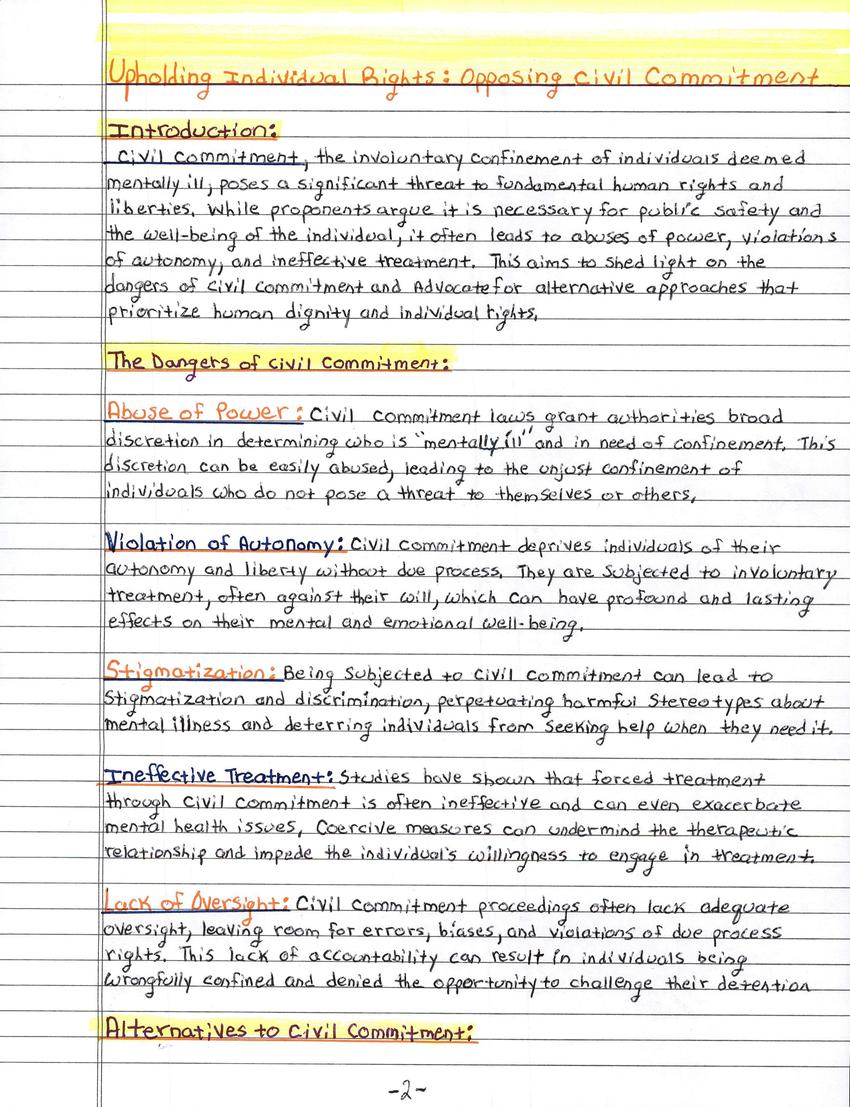 Upholding Individual Rights: Opposing Civil Commitment
Introduction:
Civil Commitment, the involuntary confinement of individuals deemed
mentally ill, poses a significant threat to fundamental human rights and
liberties. While proponents argue it is necessary for public safety and
the well-being of the individual, it often leads to abuses of power, violations
of autonomy, and ineffective treatment. This aims to shed light on the
dangers of civil commitment and Advocate for alternative approaches that
prioritize human dignity and individual rights.
The Dangers of Civil Commitment:
Abuse of Power: Civil Commitment laws grant authorities broad
discretion in determining who is "mentally ill" and in need of confinement. This
discretion can be easily abused, leading to the unjust confinement of
individuals who do not pose a threat to themselves or others.
Violation of Autonomy: Civil Commitment deprives individuals of their
autonomy and liberty without due process. They are Subjected to involuntary
treatment, often against their will, which can have profound and lasting
effects on their mental and emotional well-being.
Stigmatization: Being Subjected to Civil Commitment can lead to
Stigmatization and discrimination, perpetuating harmful Stereotypes about
mental illness and deterring individuals from Seeking help when they need it.
Ineffective Treatment: Studies have shown that forced treatment
through Civil Commitment is often ineffective and can even exacerbate
mental health issues, Coercive measures can undermind the therapeutic
relationship and impede the individual's willingness to engage in treatment.
Lack of Oversight: Civil Commitment proceedings often lack adequate
oversight, leaving room for errors, biases, and violations of due process
rights. This lack of accountability can result in individuals being
wrongfully confined and denied the opportunity to challenge their detention
Alternatives to Civil Commitment:
-2-